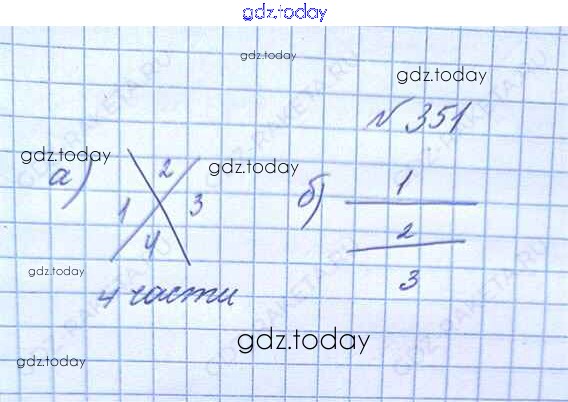 gdz.today
gdz.today
gdz.today
№ 351
gdz.today
gdz.today
а)
2
1
3
4
б)
1
2
3
gdz.today
4 части
gdz.today
gdz.today
GDZ-RAKETA.RU